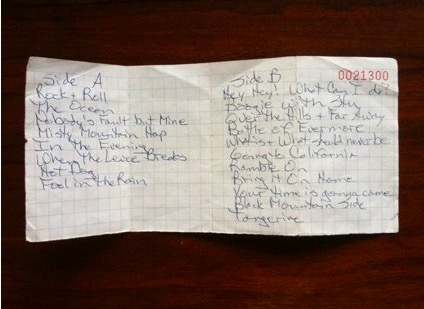 Side A
Rock + Roll
The Ocean
Nobody's Fault but Mine
Misty Mountain Hop
In The Evening
When The Levee Breaks
Hot Dog
Fool in the Rain
Side B
0021300
Hey Hey! What Can I do?
Boogie with Stu
Over the Hills + Far Away
Battle of Evermore
What is + What should never be
Going to California
Ramble On
Bring it On Home
Your time is gonna come
Black Mountain Side
Tangerine